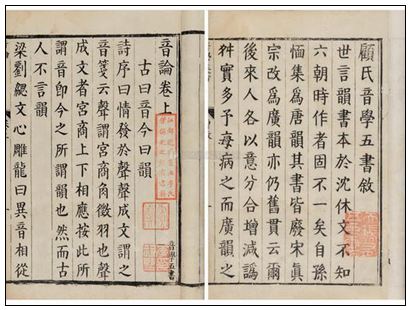 顧氏音學五書敘
世言韻書本於沈休文不知
六朝時作者固不一矣自孫
愐集為唐韻其書皆廢宋真
宗改為廣韻亦仍舊貫云爾
後來人各以意分合增減譌
舛實多予每病之而廣韻之
音學五書
音論卷上
古曰音今曰韻
詩序曰情發於聲聲成文謂之
音箋云聲謂宮商角徵羽也聲
成文者宮商上下相應按此所
謂音即今之所謂韻也然而古
人不言韻
梁劉勰文心雕龍曰異音相從